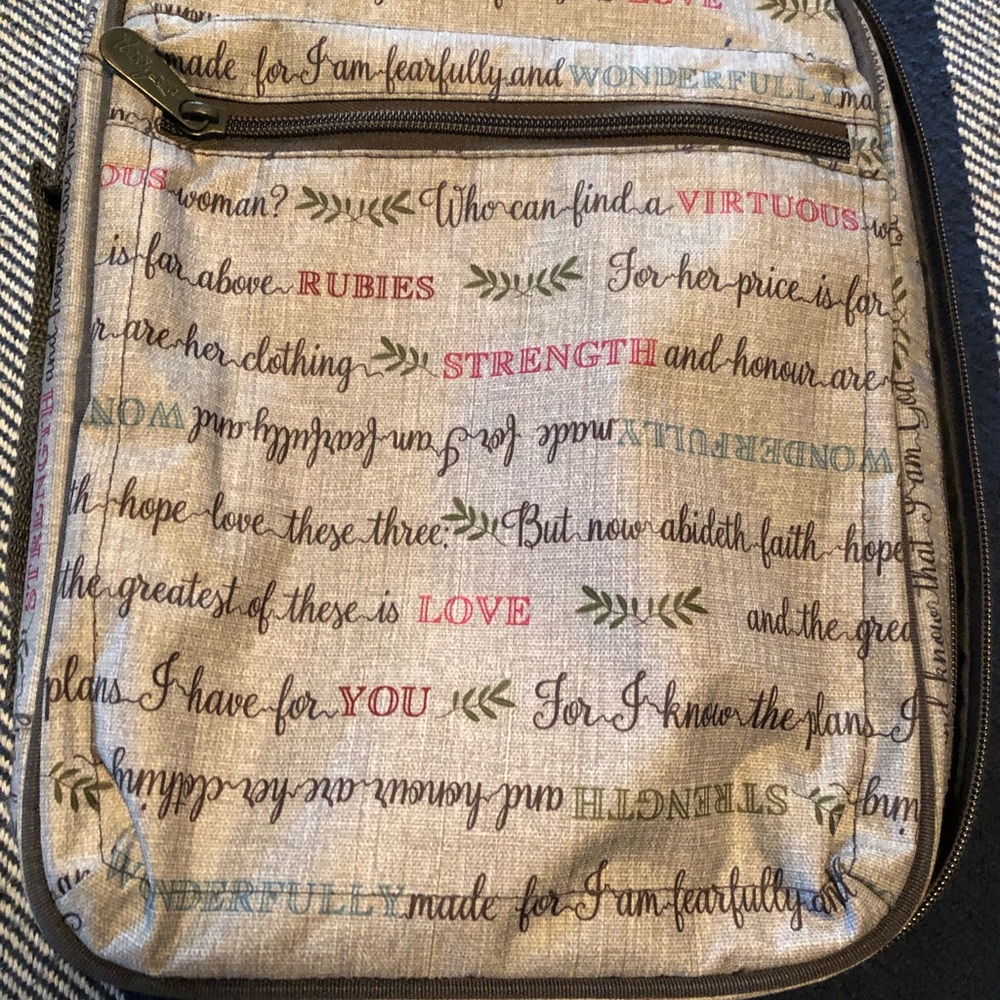 LOVE
made for I am fearfully and WONDERFULLY ma
OUS woman? Who can find a VIRTUOUS wo
is far above RUBIES For her price is far
r are her clothing STRENGTH and honour are
WONDERFULLY made for I am fearfully and WON
th hope love these three; But now abideth faith hope
the greatest of these is LOVE and the grea
plans I have for YOU For I know the plans I
ing STRENGTH and honour are her clothing
NDERFULLY made for I am fearfully and
STRENGTH and honour are her
know that I am God